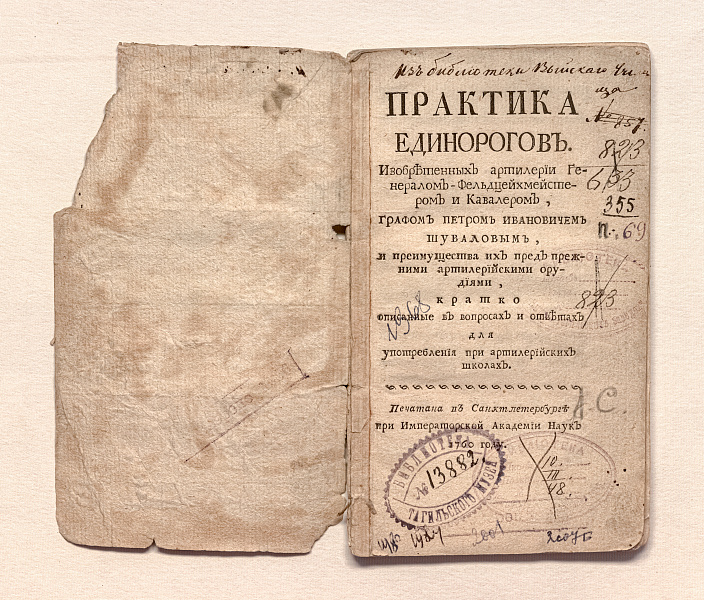 Изъ библиотеки Выйскаго Учили
ща
№ 857.
ПРАКТИКА
ЕДИНОРОГОВЪ.
823
Изобрѣтенныхъ артилерїи Ге-
нераломъ-Фельдцейхмейсте-
ромъ и Кавалеромъ,
633
355
ГРАФОМЪ ПЕТРОМЪ ИВАНОВИЧЕМЪ
П.-69
ШУВАЛОВЫМЪ,
и преимущества ихъ предъ преж-
ними артилерїйскими ору-
дїями,
кратко
823
описанные въ вопросахъ и отвѣтахъ
для
употребленїя при артилерїйскихъ
школахъ.
Печатана въ Санктпетербургѣ
А.С.
при Императорской Академїи Наукъ
1760 году.
БИБЛИОТЕКА
№ 13882.
ТАГИЛЬСКОГО МУЗЕЯ
10.
III
48.